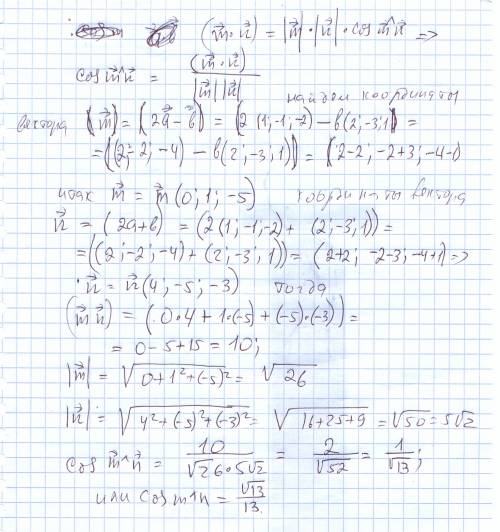 (m⃗·n⃗) = |m⃗|·|n⃗|·cos m⃗^n⃗ =>
cos m⃗^n⃗ = (m⃗·n⃗) / |m⃗||n⃗|
найдем координаты
вектора (m⃗) = (2a⃗ - b⃗) = (2(1;-1;-2) - в(2;-3;1)) =
= ((2;-2;-4) - в(2;-3;1)) = (2-2; -2+3; -4-1)
итак m⃗ = m⃗(0; 1; -5) координаты вектора
n⃗ = (2a+b) = (2(1;-1;-2) + (2;-3;1)) =
= ((2;-2;-4) + (2;-3;1)) = (2+2; -2-3; -4+1) =>
n⃗ = n⃗(4; -5; -3) тогда
(m⃗ n⃗) = (0·4 + 1·(-5) + (-5)·(-3)) =
= 0-5+15 = 10;
|m⃗| = √(0+1²+(-5)²) = √26
|n⃗| = √(4²+(-5)²+(-3)²) = √(16+25+9) = √50 = 5√2
cos m⃗^n⃗ = 10 / √26·5√2 = 2/√52 = 1/√13;
или cos m^n = √13/13.